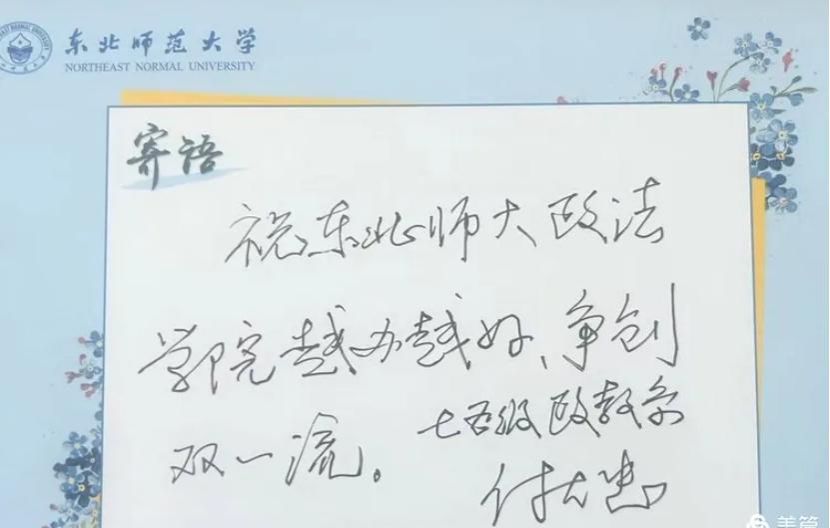 东北师范大学
NORTHEAST NORMAL UNIVERSITY
寄语
祝东北师大政法
学院越办越好、争创
双一流。
七五级政教系
美篇